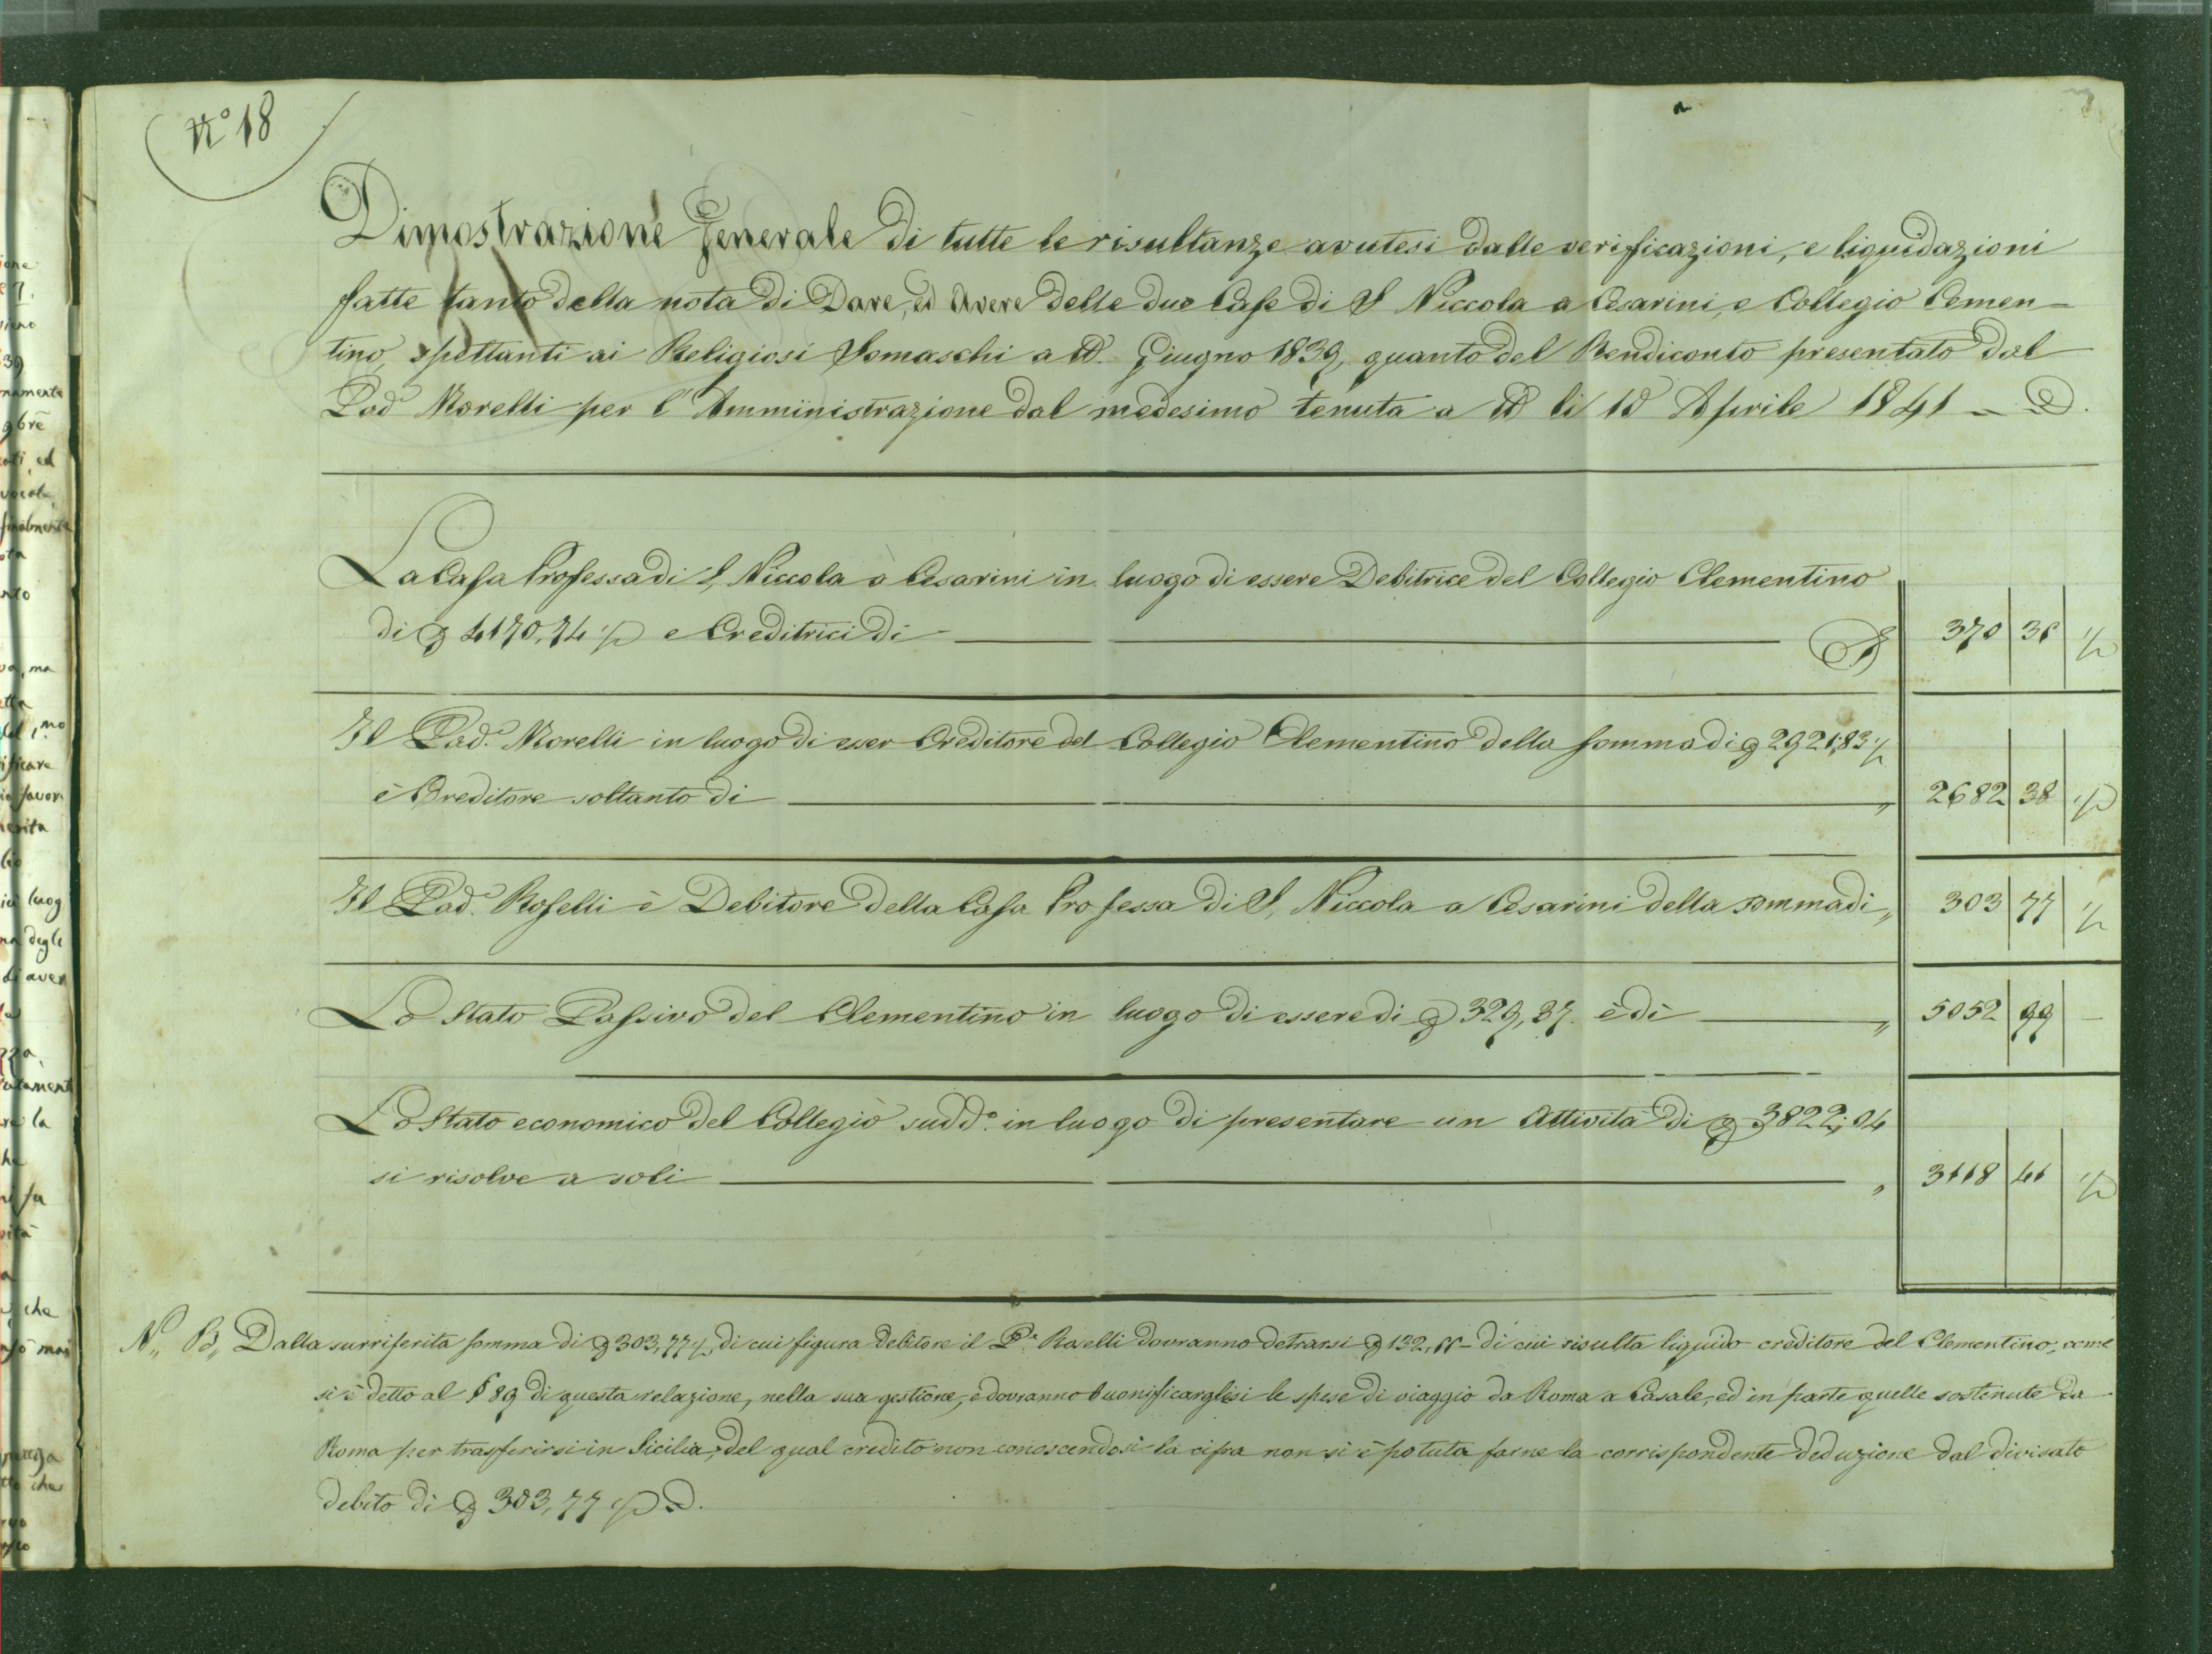 N.° 18
Dimostrazione Generale di tutte le risultanze avutesi dalle verificazioni, e liquidazioni
fatte tanto della nota di Dare, ed Avere delle due Case di S Niccola a Cesarini, e Collegio Cemen-
tino, spettanti ai Religiosi Somaschi a tt. Giugno 1839, quanto del Rendiconto presentato dal
Pad.e Morelli per l'Amministrazione dal medesimo tenuta a tt li 10 Aprile 1841
La Casa Professa di S, Niccola a Cesarini in luogo di essere Debitrice del Collegio Clementino
di 4170,74 ½ e Creditrici di 370 36 ½
Il Pad.e Morelli in luogo di esser Creditore del Collegio Clementino della somma di 2921,83 ½
è Creditore soltanto di 2682 38 ½
Il Pad.e Roselli è Debitore della Casa Professa di S, Niccola a Cesarini della somma di 303 77 ½
Lo Stato Passivo del Clementino in luogo di essere di 329,37. è di 5052 99 –
Lo Stato economico del Collegio sudd.o in luogo di presentare un Attività di 3822,04
si risolve a soli 3118 41 ½
N,, B,, Dalla surriferita somma di 303,77 ½, di cui figura debitore il P.e Roselli dovranno detrarsi 132, di cui risulta liquido creditore del Clementino, come
si è detto al § 89 di questa relazione, nella sua gestione, e dovranno buonificarglisi le spese di viaggio da Roma a Casale, ed in parte quelle sostenute da
Roma per trasferirsi in Sicilia, del qual credito non conoscendosi la cifra non si è potuta farne la corrispondente deduzione dal divisato
debito di 303,77 ½